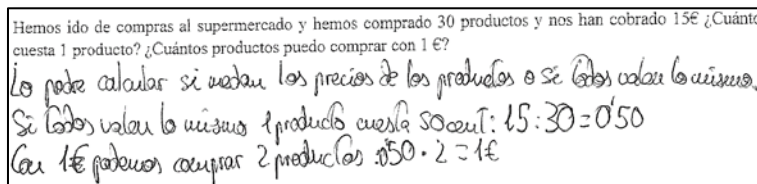 Hemos ido de compras al supermercado y hemos comprado 30 productos y nos han cobrado 15€ ¿Cuánto
cuesta 1 producto? ¿Cuántos productos puedo comprar con 1 €?
Lo podre calcular si me dan los precios de los productos o si todos valen lo mismo.
Si todos valen lo mismo 1 producto cuesta 50 cent: 15:30=0'50
Con 1€ podemos comprar 2 productos 0'50·2=1€